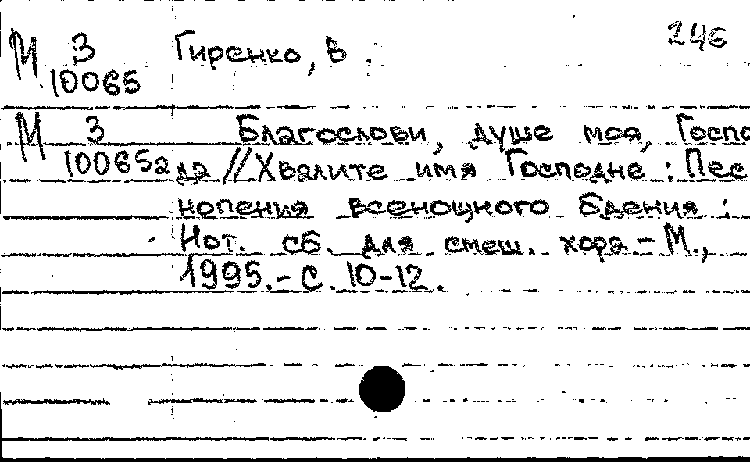 М 3 Гиренко, В. 246
10065
М 3 Благослови, душе моя, Госпо
10065а да // Хвалите имя Господне : Пес
нопения всенощного бдения :
Нот. сб. для смеш. хора – М.,
1995. – С. 10–12.